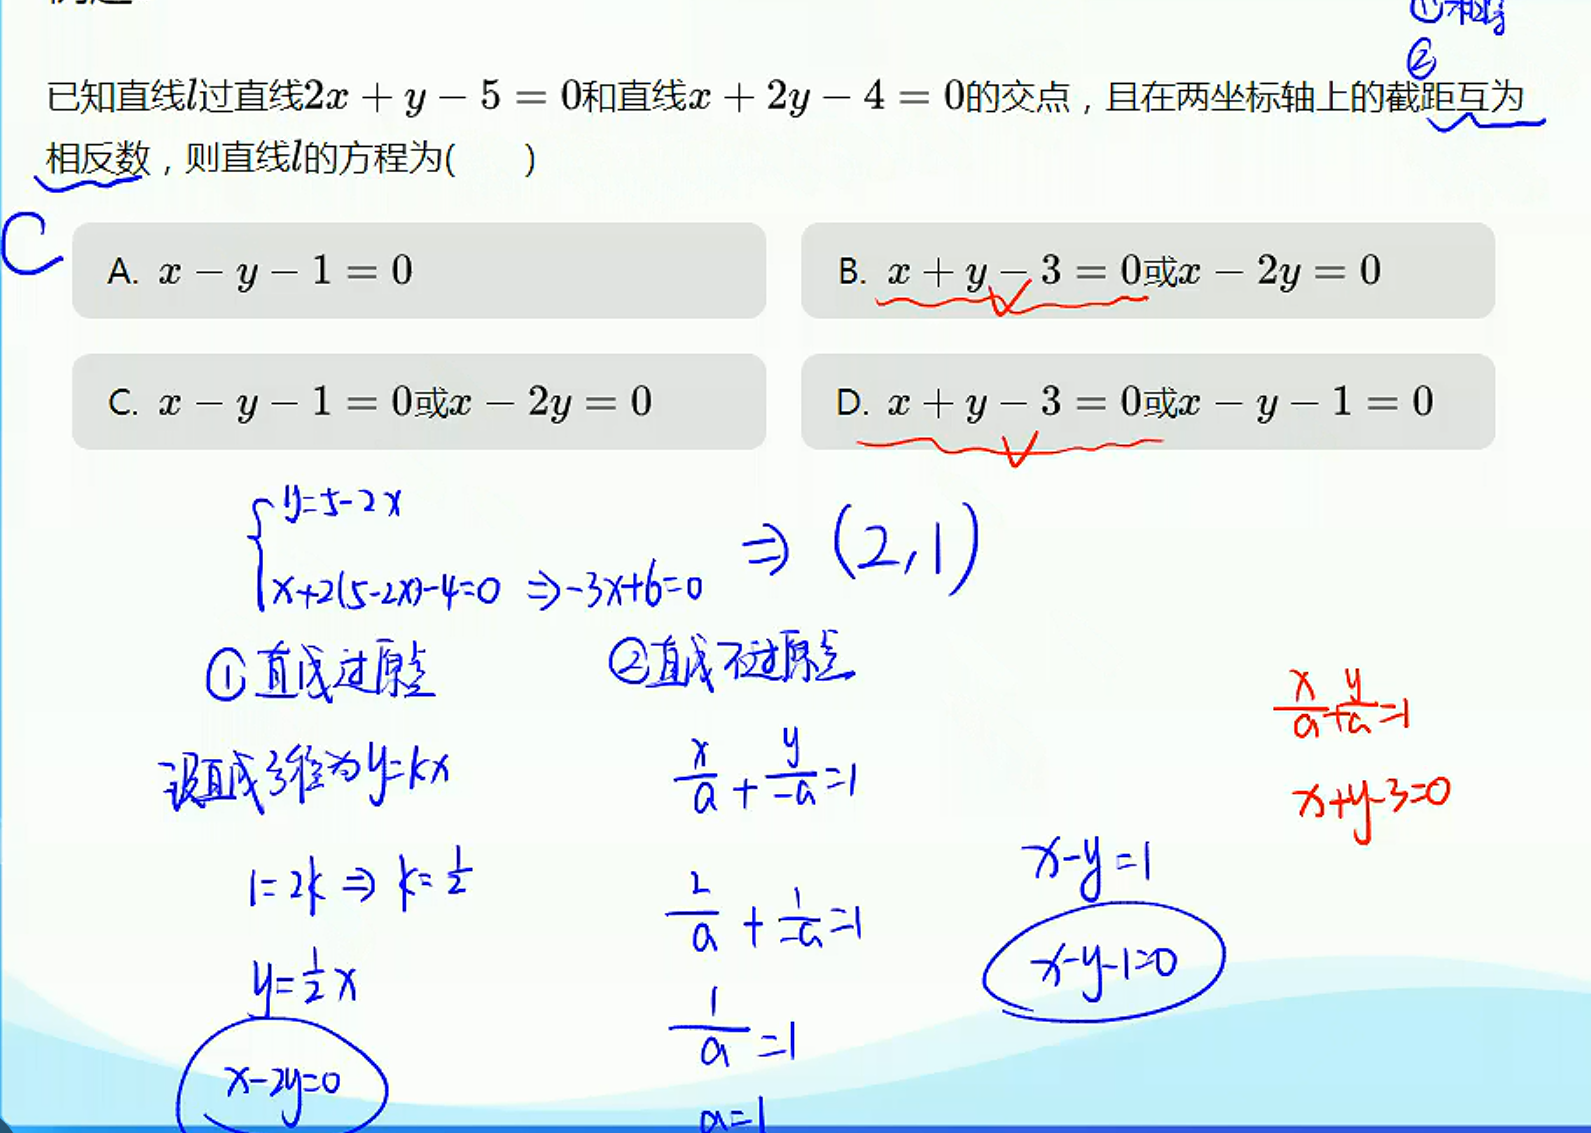 ① 相等
②
已知直线l过直线2x + y − 5 = 0和直线x + 2y − 4 = 0的交点，且在两坐标轴上的截距互为
相反数，则直线l的方程为(　　)
C
A. x − y − 1 = 0
B. x + y − 3 = 0或x − 2y = 0
C. x − y − 1 = 0或x − 2y = 0
D. x + y − 3 = 0或x − y − 1 = 0
{ y=5-2x
x+2(5-2x)-4=0 ⇒ -3x+6=0 ⇒ (2,1)
①直线过原点
设直线方程为y=kx
1=2k ⇒ k=1/2
y=1/2x
x-2y=0
②直线不过原点
x/a + y/-a =1
2/a + 1/-a =1
1/a =1
a=1
x-y=1
x-y-1=0
x/a + y/a =1
x+y-3=0